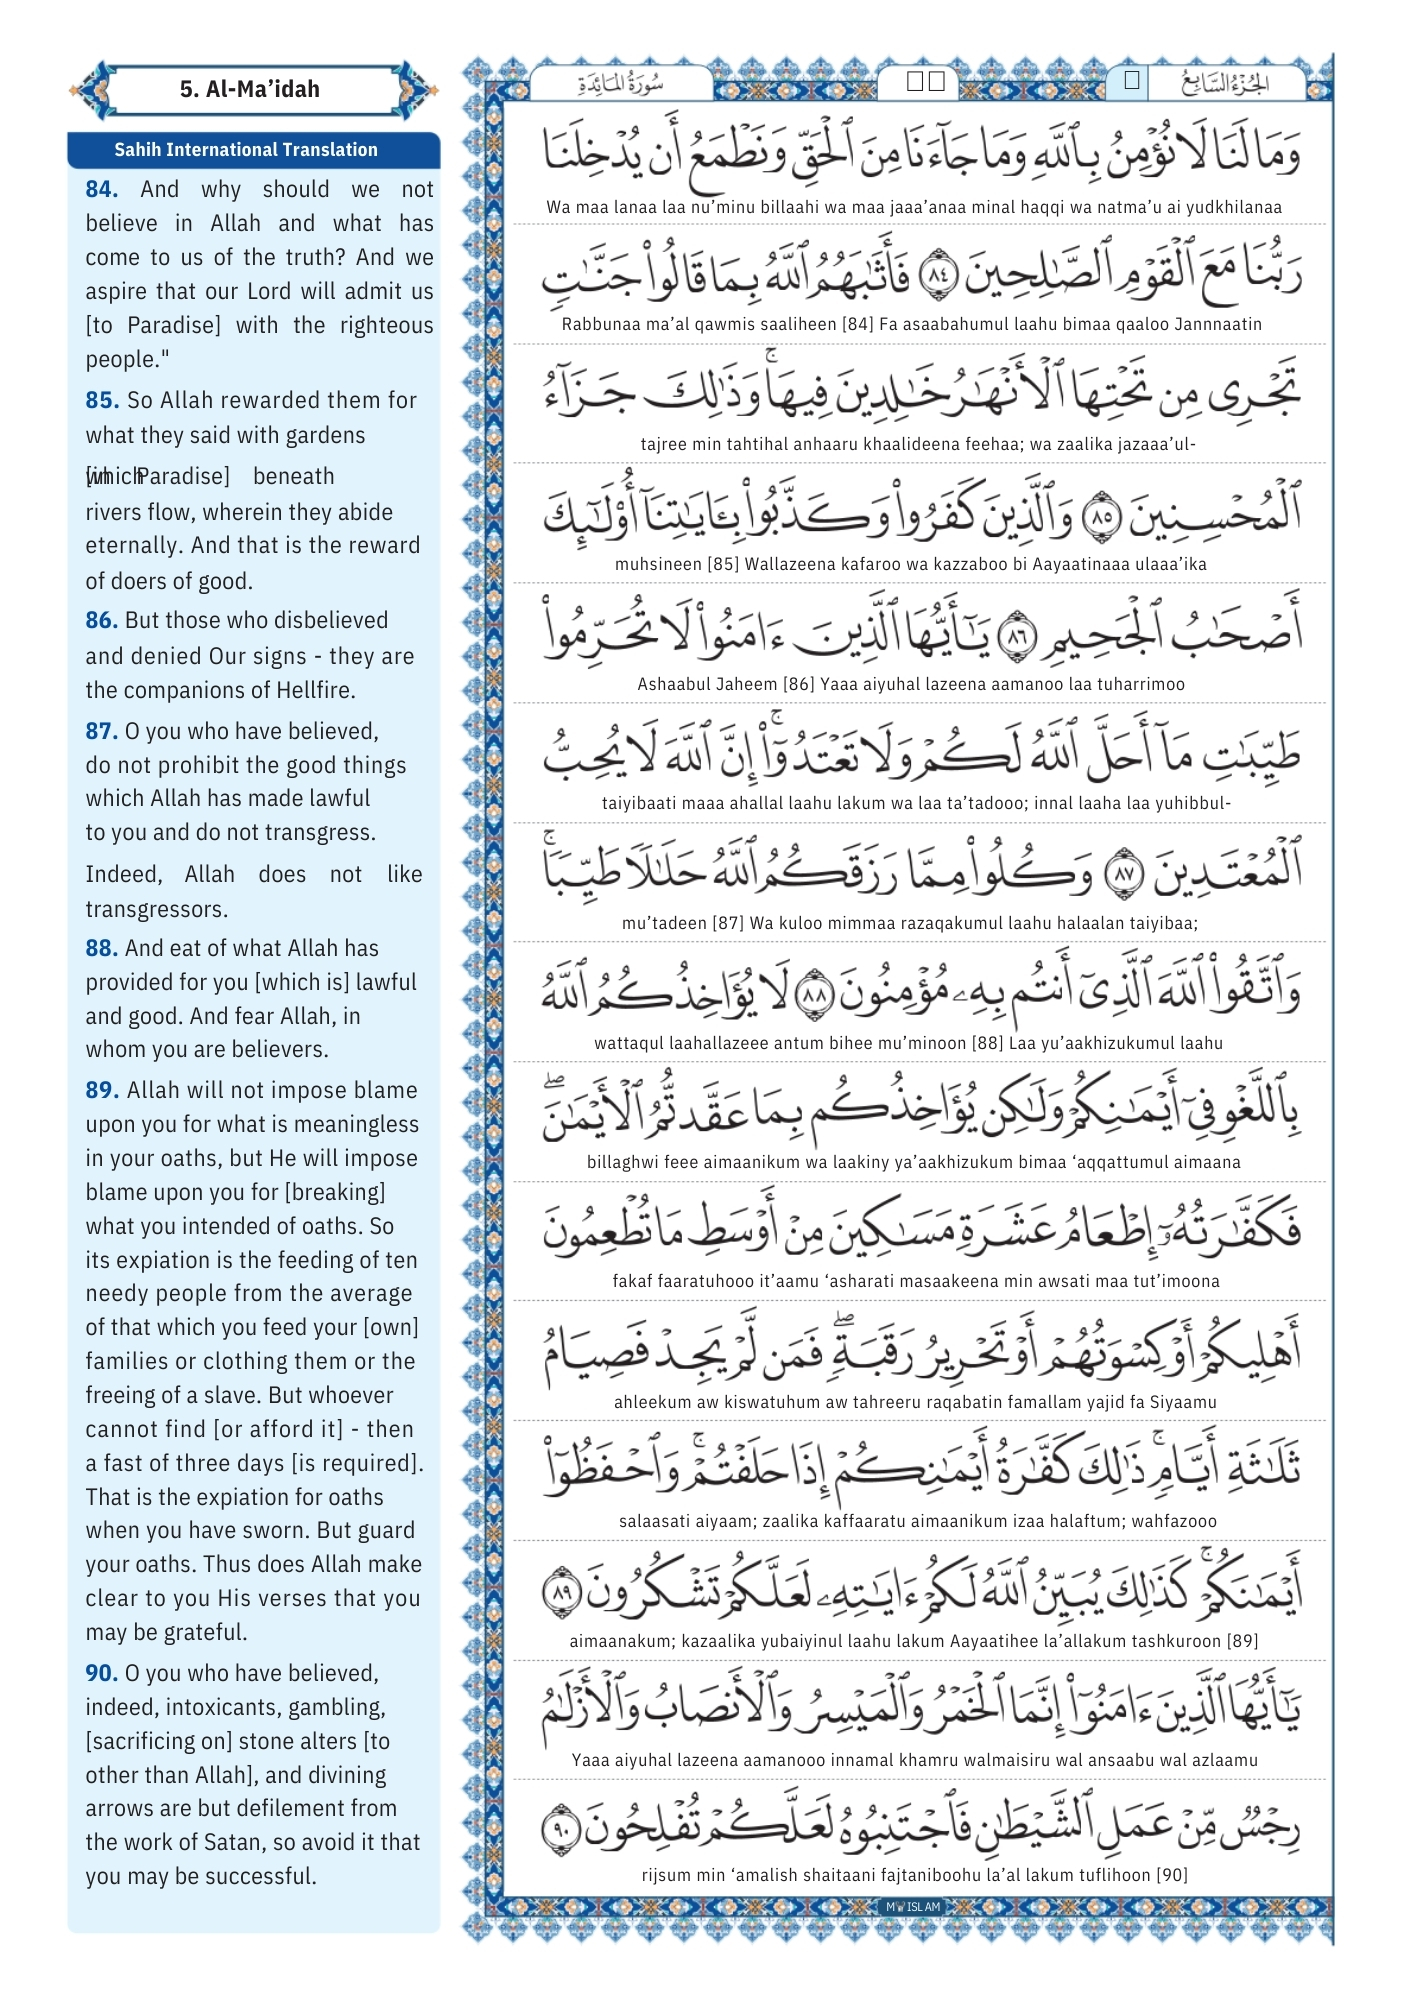 5. Al-Ma’idah
Sahih International Translation
84. And why should we not
believe in Allah and what has
come to us of the truth? And we
aspire that our Lord will admit us
[to Paradise] with the righteous
people."
85. So Allah rewarded them for
what they said with gardens
[in Paradise] beneath
which
rivers flow, wherein they abide
eternally. And that is the reward
of doers of good.
86. But those who disbelieved
and denied Our signs - they are
the companions of Hellfire.
87. O you who have believed,
do not prohibit the good things
which Allah has made lawful
to you and do not transgress.
Indeed, Allah does not like
transgressors.
88. And eat of what Allah has
provided for you [which is] lawful
and good. And fear Allah, in
whom you are believers.
89. Allah will not impose blame
upon you for what is meaningless
in your oaths, but He will impose
blame upon you for [breaking]
what you intended of oaths. So
its expiation is the feeding of ten
needy people from the average
of that which you feed your [own]
families or clothing them or the
freeing of a slave. But whoever
cannot find [or afford it] - then
a fast of three days [is required].
That is the expiation for oaths
when you have sworn. But guard
your oaths. Thus does Allah make
clear to you His verses that you
may be grateful.
90. O you who have believed,
indeed, intoxicants, gambling,
[sacrificing on] stone alters [to
other than Allah], and divining
arrows are but defilement from
the work of Satan, so avoid it that
you may be successful.
الجُزْءُ السَّابِعُ
سُورَةُ المَائِدَةِ
وَمَا لَنَا لَا نُؤْمِنُ بِٱللَّهِ وَمَا جَآءَنَا مِنَ ٱلْحَقِّ وَنَطْمَعُ أَن يُدْخِلَنَا
Wa maa lanaa laa nu’minu billaahi wa maa jaaa’anaa minal haqqi wa natma’u ai yudkhilanaa
رَبُّنَا مَعَ ٱلْقَوْمِ ٱلصَّـٰلِحِينَ ٨٤ فَأَثَـٰبَهُمُ ٱللَّهُ بِمَا قَالُوا۟ جَنَّـٰتٍ
Rabbunaa ma’al qawmis saaliheen [84] Fa asaabahumul laahu bimaa qaaloo Jannnaatin
تَجْرِى مِن تَحْتِهَا ٱلْأَنْهَـٰرُ خَـٰلِدِينَ فِيهَا ۚ وَذَٰلِكَ جَزَآءُ
tajree min tahtihal anhaaru khaalideena feehaa; wa zaalika jazaaa’ul-
ٱلْمُحْسِنِينَ ٨٥ وَٱلَّذِينَ كَفَرُوا۟ وَكَذَّبُوا۟ بِـَٔايَـٰتِنَآ أُو۟لَـٰٓئِكَ
muhsineen [85] Wallazeena kafaroo wa kazzaboo bi Aayaatinaaa ulaaa’ika
أَصْحَـٰبُ ٱلْجَحِيمِ ٨٦ يَـٰٓأَيُّهَا ٱلَّذِينَ ءَامَنُوا۟ لَا تُحَرِّمُوا۟
Ashaabul Jaheem [86] Yaaa aiyuhal lazeena aamanoo laa tuharrimoo
طَيِّبَـٰتِ مَآ أَحَلَّ ٱللَّهُ لَكُمْ وَلَا تَعْتَدُوٓا۟ ۚ إِنَّ ٱللَّهَ لَا يُحِبُّ
taiyibaati maaa ahallal laahu lakum wa laa ta’tadooo; innal laaha laa yuhibbul-
ٱلْمُعْتَدِينَ ٨٧ وَكُلُوا۟ مِمَّا رَزَقَكُمُ ٱللَّهُ حَلَـٰلًا طَيِّبًا ۚ
mu’tadeen [87] Wa kuloo mimmaa razaqakumul laahu halaalan taiyibaa;
وَٱتَّقُوا۟ ٱللَّهَ ٱلَّذِىٓ أَنتُم بِهِۦ مُؤْمِنُونَ ٨٨ لَا يُؤَاخِذُكُمُ ٱللَّهُ
wattaqul laahallazeee antum bihee mu’minoon [88] Laa yu’aakhizukumul laahu
بِٱللَّغْوِ فِىٓ أَيْمَـٰنِكُمْ وَلَـٰكِن يُؤَاخِذُكُم بِمَا عَقَّدتُّمُ ٱلْأَيْمَـٰنَ ۖ
billaghwi feee aimaanikum wa laakiny ya’aakhizukum bimaa ‘aqqattumul aimaana
فَكَفَّـٰرَتُهُۥٓ إِطْعَامُ عَشَرَةِ مَسَـٰكِينَ مِنْ أَوْسَطِ مَا تُطْعِمُونَ
fakaf faaratuhooo it’aamu ‘asharati masaakeena min awsati maa tut’imoona
أَهْلِيكُمْ أَوْ كِسْوَتُهُمْ أَوْ تَحْرِيرُ رَقَبَةٍ ۖ فَمَن لَّمْ يَجِدْ فَصِيَامُ
ahleekum aw kiswatuhum aw tahreeru raqabatin famallam yajid fa Siyaamu
ثَلَـٰثَةِ أَيَّامٍ ۚ ذَٰلِكَ كَفَّـٰرَةُ أَيْمَـٰنِكُمْ إِذَا حَلَفْتُمْ ۚ وَٱحْفَظُوٓا۟
salaasati aiyaam; zaalika kaffaaratu aimaanikum izaa halaftum; wahfazooo
أَيْمَـٰنَكُمْ ۚ كَذَٰلِكَ يُبَيِّنُ ٱللَّهُ لَكُمْ ءَايَـٰتِهِۦ لَعَلَّكُمْ تَشْكُرُونَ ٨٩
aimaanakum; kazaalika yubaiyinul laahu lakum Aayaatihee la’allakum tashkuroon [89]
يَـٰٓأَيُّهَا ٱلَّذِينَ ءَامَنُوٓا۟ إِنَّمَا ٱلْخَمْرُ وَٱلْمَيْسِرُ وَٱلْأَنصَابُ وَٱلْأَزْلَـٰمُ
Yaaa aiyuhal lazeena aamanooo innamal khamru walmaisiru wal ansaabu wal azlaamu
رِجْسٌ مِّنْ عَمَلِ ٱلشَّيْطَـٰنِ فَٱجْتَنِبُوهُ لَعَلَّكُمْ تُفْلِحُونَ ٩٠
rijsum min ‘amalish shaitaani fajtaniboohu la’al lakum tuflihoon [90]